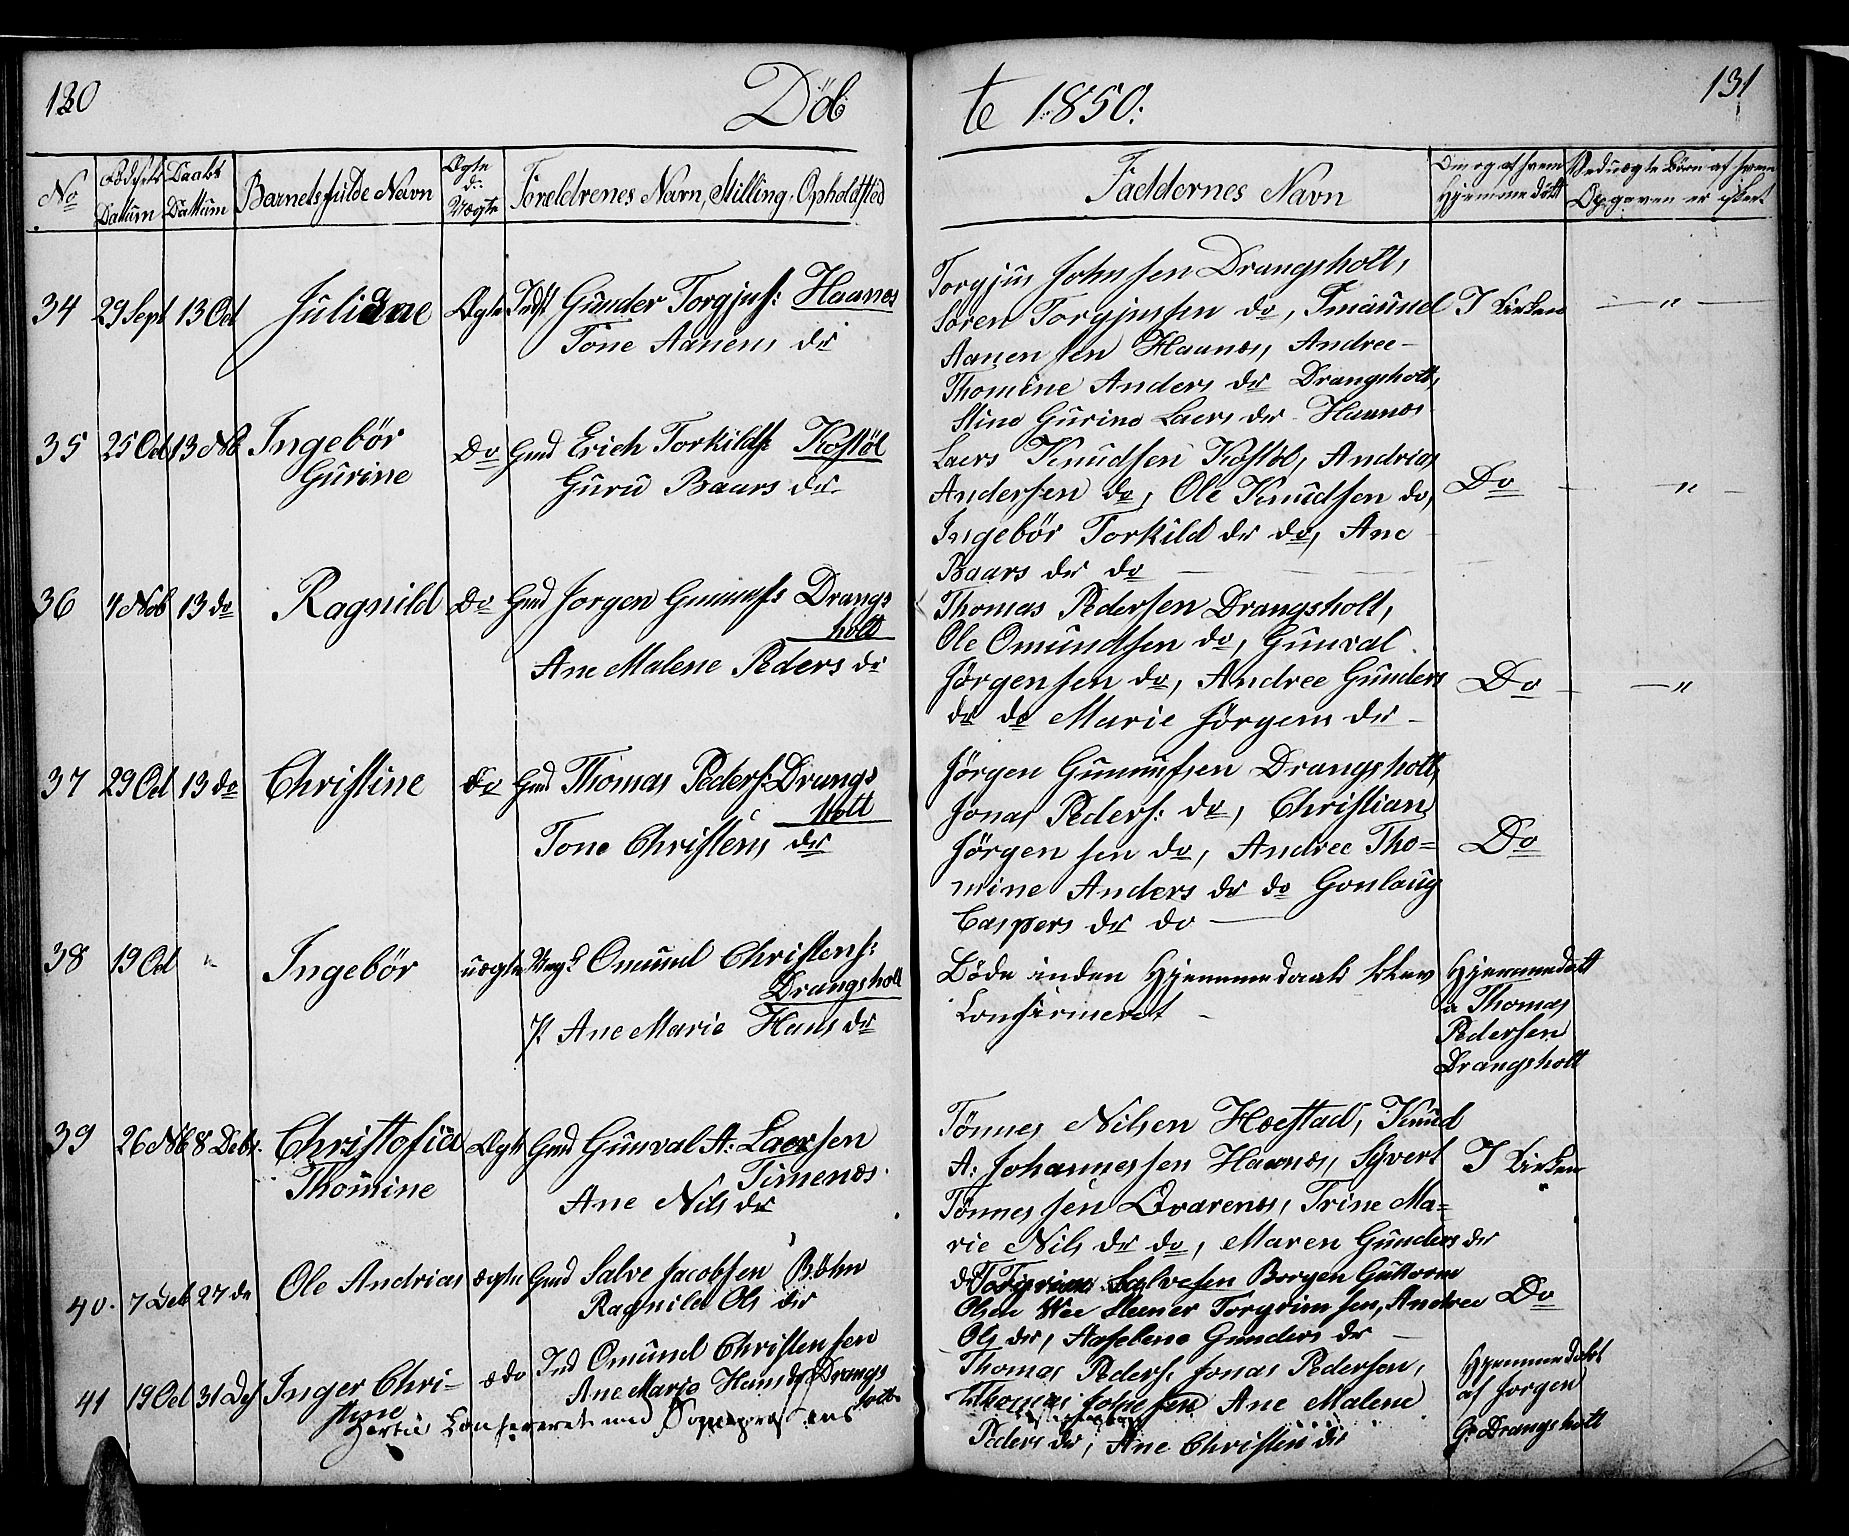 130
Döb
te 1850.
131
No
Födsels Dattum
Daabs Dattum
Barnets fulde Navn
Ægte
d:
Uægte
Foreldrenes Navn, Stilling, Opholdsted
Faddernes Navn
Om og af hvem
Hjemmedöbt
Ved uægte Börn af hvem
Opgaven er skeet
34 29 Sept 13 Oct Juliane Ægte Gunder Torgjus: Haanes
Tone Aanens dr
Torgjus Johnsen Drangsholt,
Sören Torgjussen do, Smäuuel
Aanensen Haanes, Andree
Thomine Anders dr Drangsholt,
Stine Gurine Laers dr Haanes
I Kirken
— " —
35 25 Oct 13 Nb Ingebör
Gurine
Do Gmd Erich Torkilds Kostöl
Guru Baars dr
Laers Knudsen Kostöl, Andrias
Andersen do, Ole Knudsen do,
Ingebör Torkild dr do, Ane
Baars dr do
Do
— " —
36 4 Nob 13 do Ragnild Do Gmd Jorgen Gunnufs Drangs
holt
Ane Malene Peders dr
Thomas Pedersen Drangsholt,
Ole Omundsen do, Gunval
Jörgensen do, Andree Gunders
dr do Marie Jörgens dr
Do
— "
37 29 Oct 13 do Christine do Gmd Thomas Peders: Drangs
holt
Tone Christens dr
Jörgen Gunnufsen Drangsholt,
Jonas Peders: do, Christian
Jörgensen do, Andree Tho=
mine Anders dr do Gonlaug
Caspers dr do
Do
38 19 Oct " Ingebör uægte Ungk Omund Christens:
Drangsholt
P. Ane Marie Hans dr
Döde inden Hjemmedaab blev
Confirmeret
Hjemmedöbt
a Thomas
Pedersen
Drangsholt
39 26 Nb 8 Debr. Christofia
Thomine
Ægte Gmd Gunval A: Laersen
Timenes
Ane Nils dr
Tönnes Nilsen Hæstad, Knud
A: Johannessen Haanes, Syvert
Tönnessen Qvarenes, Trine Ma=
rie Nils dr do, Maren Gunders dr
do
I Kirken
40. 7 Deb 27 do Ole Andrias ægte Gmd Salve Jacobsen Böhn
Ragnild Ols dr
Torgrim Salvesen Borgen Guttorm
Olsen Wee Steener Torgrimsen, Andree
Ols dr, Aaselene Gunders dr
Do
41 19 Oct 31 Des Inger Chri-
stine
do Ind Omund Christensen
Ane Marie Hans dr Drangs
holt
Confereret med Sogneprestens
Thomas Peders: Jonas Pedersen,
Thomas Johnsen Ane Malene
Peders dr, Ane Christens dr
Hjemmedöbt
af Jorgen
G: Drangsholt